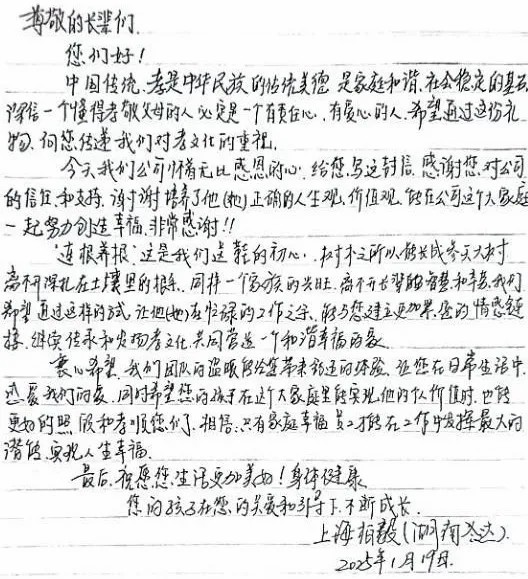 尊敬的长辈们
您们好！
中国传统，孝是中华民族的传统美德 是家庭和谐、社会稳定的基石
深信一个懂得孝敬父母的人必定是一个有责任心、有爱心的人.希望通过这份礼
物，向您传递我们对孝文化的重视.
今天我们公司怀着无比感恩的心，给您写这封信.感谢您对公司
的信任和支持.谢谢培养了他(她)正确的人生观、价值观.能在公司这个大家庭
一起努力创造幸福，非常感谢!!
连根养根：这是我们送鞋的初心.树木之所以能长成参天大树
离不开深扎在土壤里的根系.同样一个家族的兴旺.离不开长辈的智慧和辛苦.我们
希望通过这样的方式，让他(她)在忙碌的工作之余，能与您建立更加紧密的情感链
接，继续传承和发扬孝文化.共同营造一个和谐幸福的家.
衷心希望，我们团队的 能给您带来舒适的体验，让您在日常生活中.
感受我们的爱.同时希望您的孩子在这个大家庭里能实现他的个人价值时，也能
更好的照顾和孝顺您们.相信.只有家庭幸福 员工才能在工作中发挥最大的
潜能.实现人生幸福.
最后，祝愿您：生活更加美好！身体健康
您的孩子在您的关爱和引导下，不断成长.
上海 (湖南 达).
2025年1月19日.